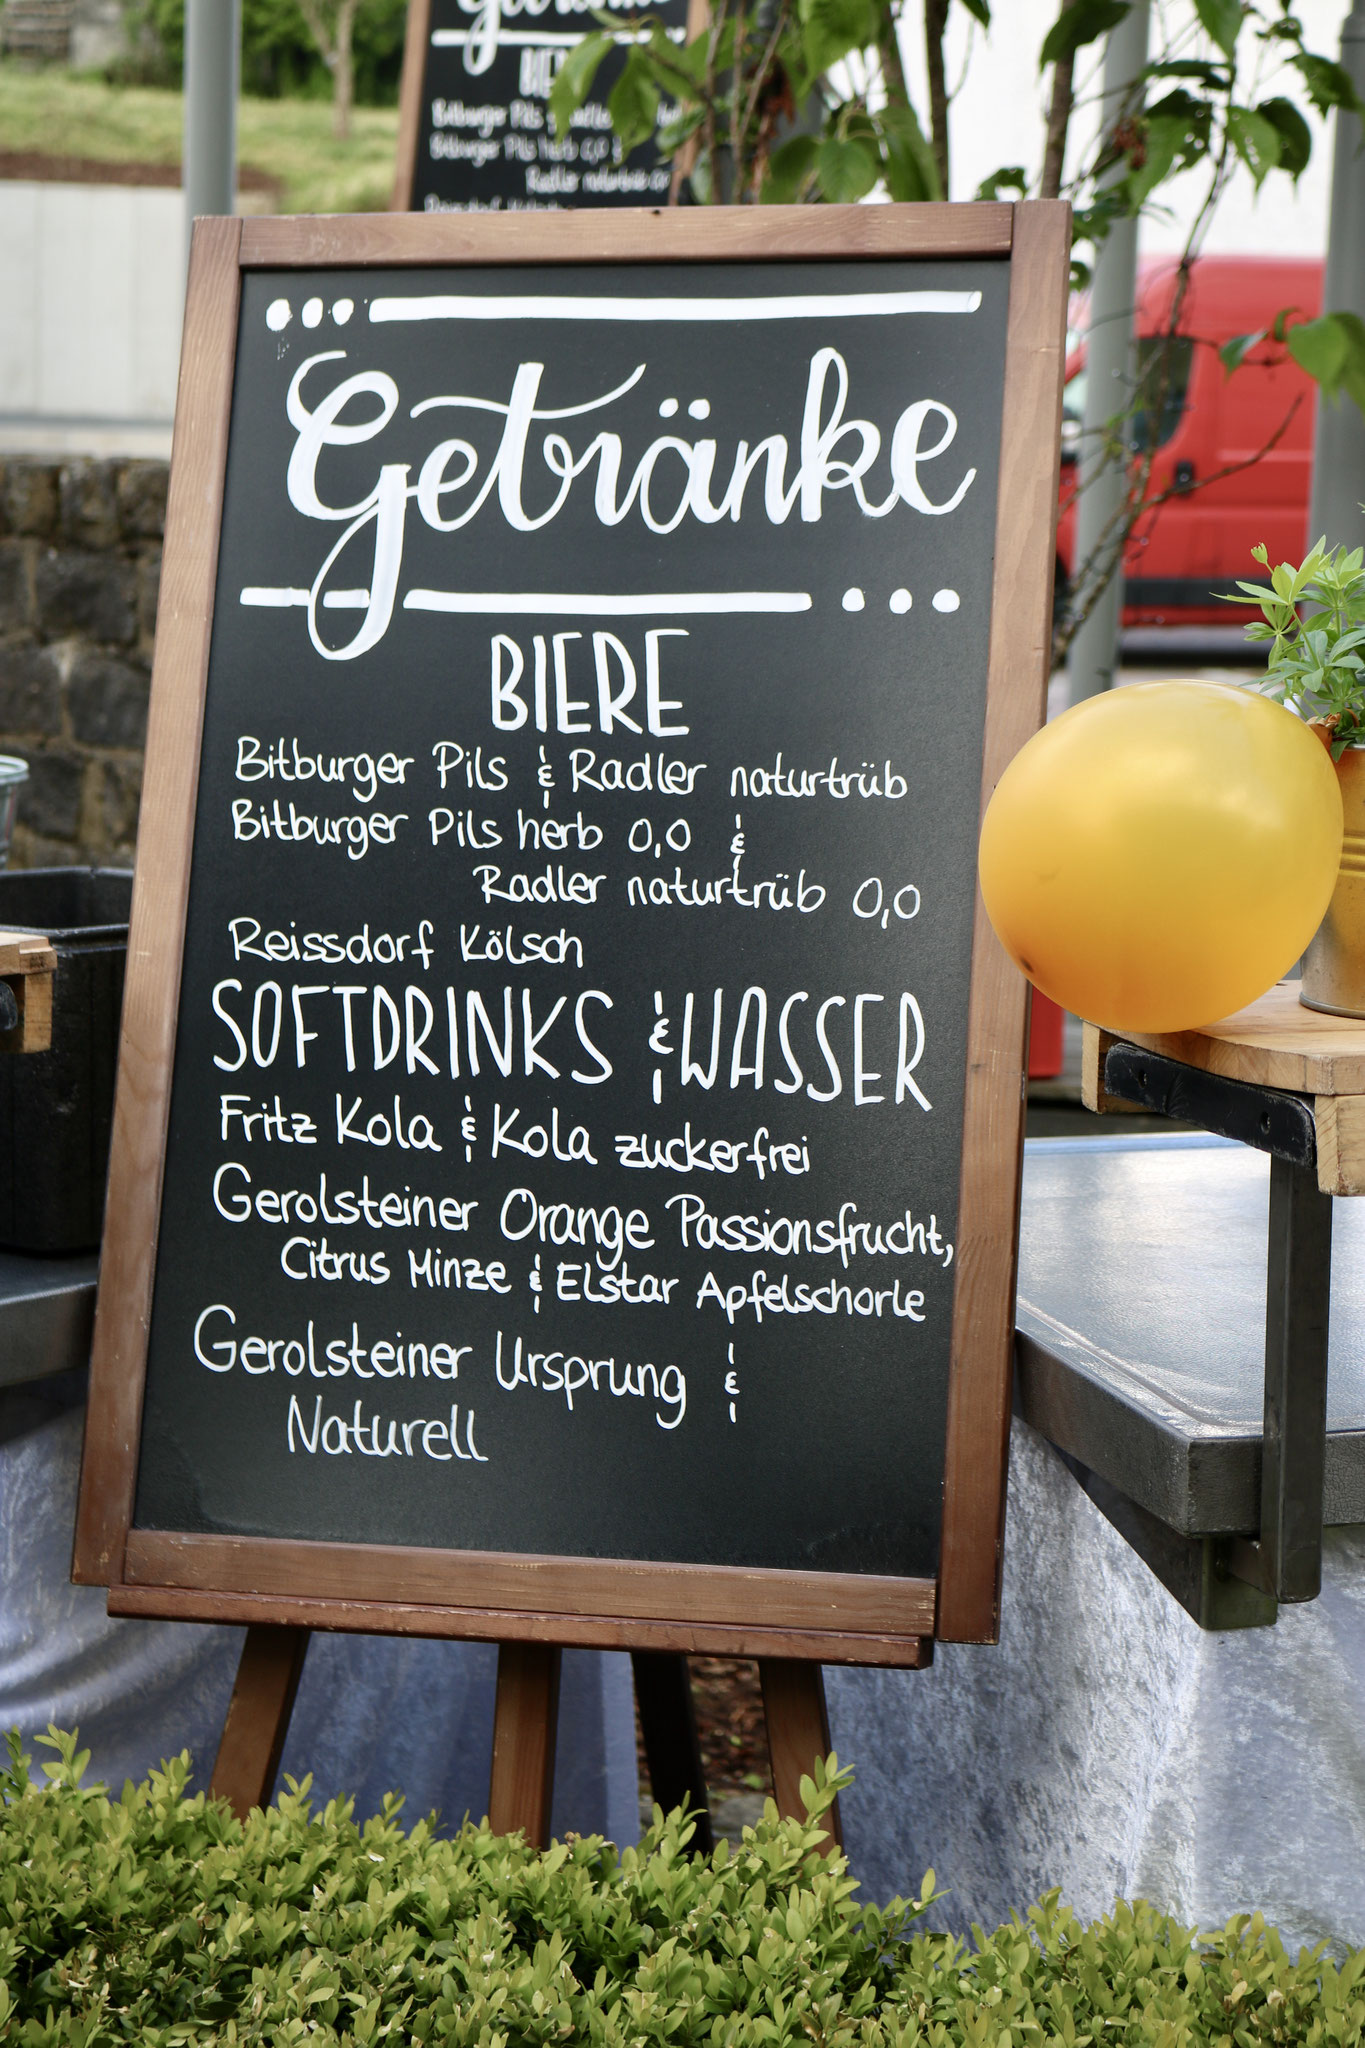 Getränke
BIERE
Bitburger Pils
Bitburger Pils herb 0,0
Radler naturtrüb
Getränke
BIERE
Bitburger Pils & Radler naturtrüb
Bitburger Pils herb 0,0 &
Radler naturtrüb 0,0
Reissdorf Kölsch
SOFTDRINKS & WASSER
Fritz Kola & Kola zuckerfrei
Gerolsteiner Orange Passionsfrucht,
Citrus Minze & Elstar Apfelschorle
Gerolsteiner Ursprung &
Naturell